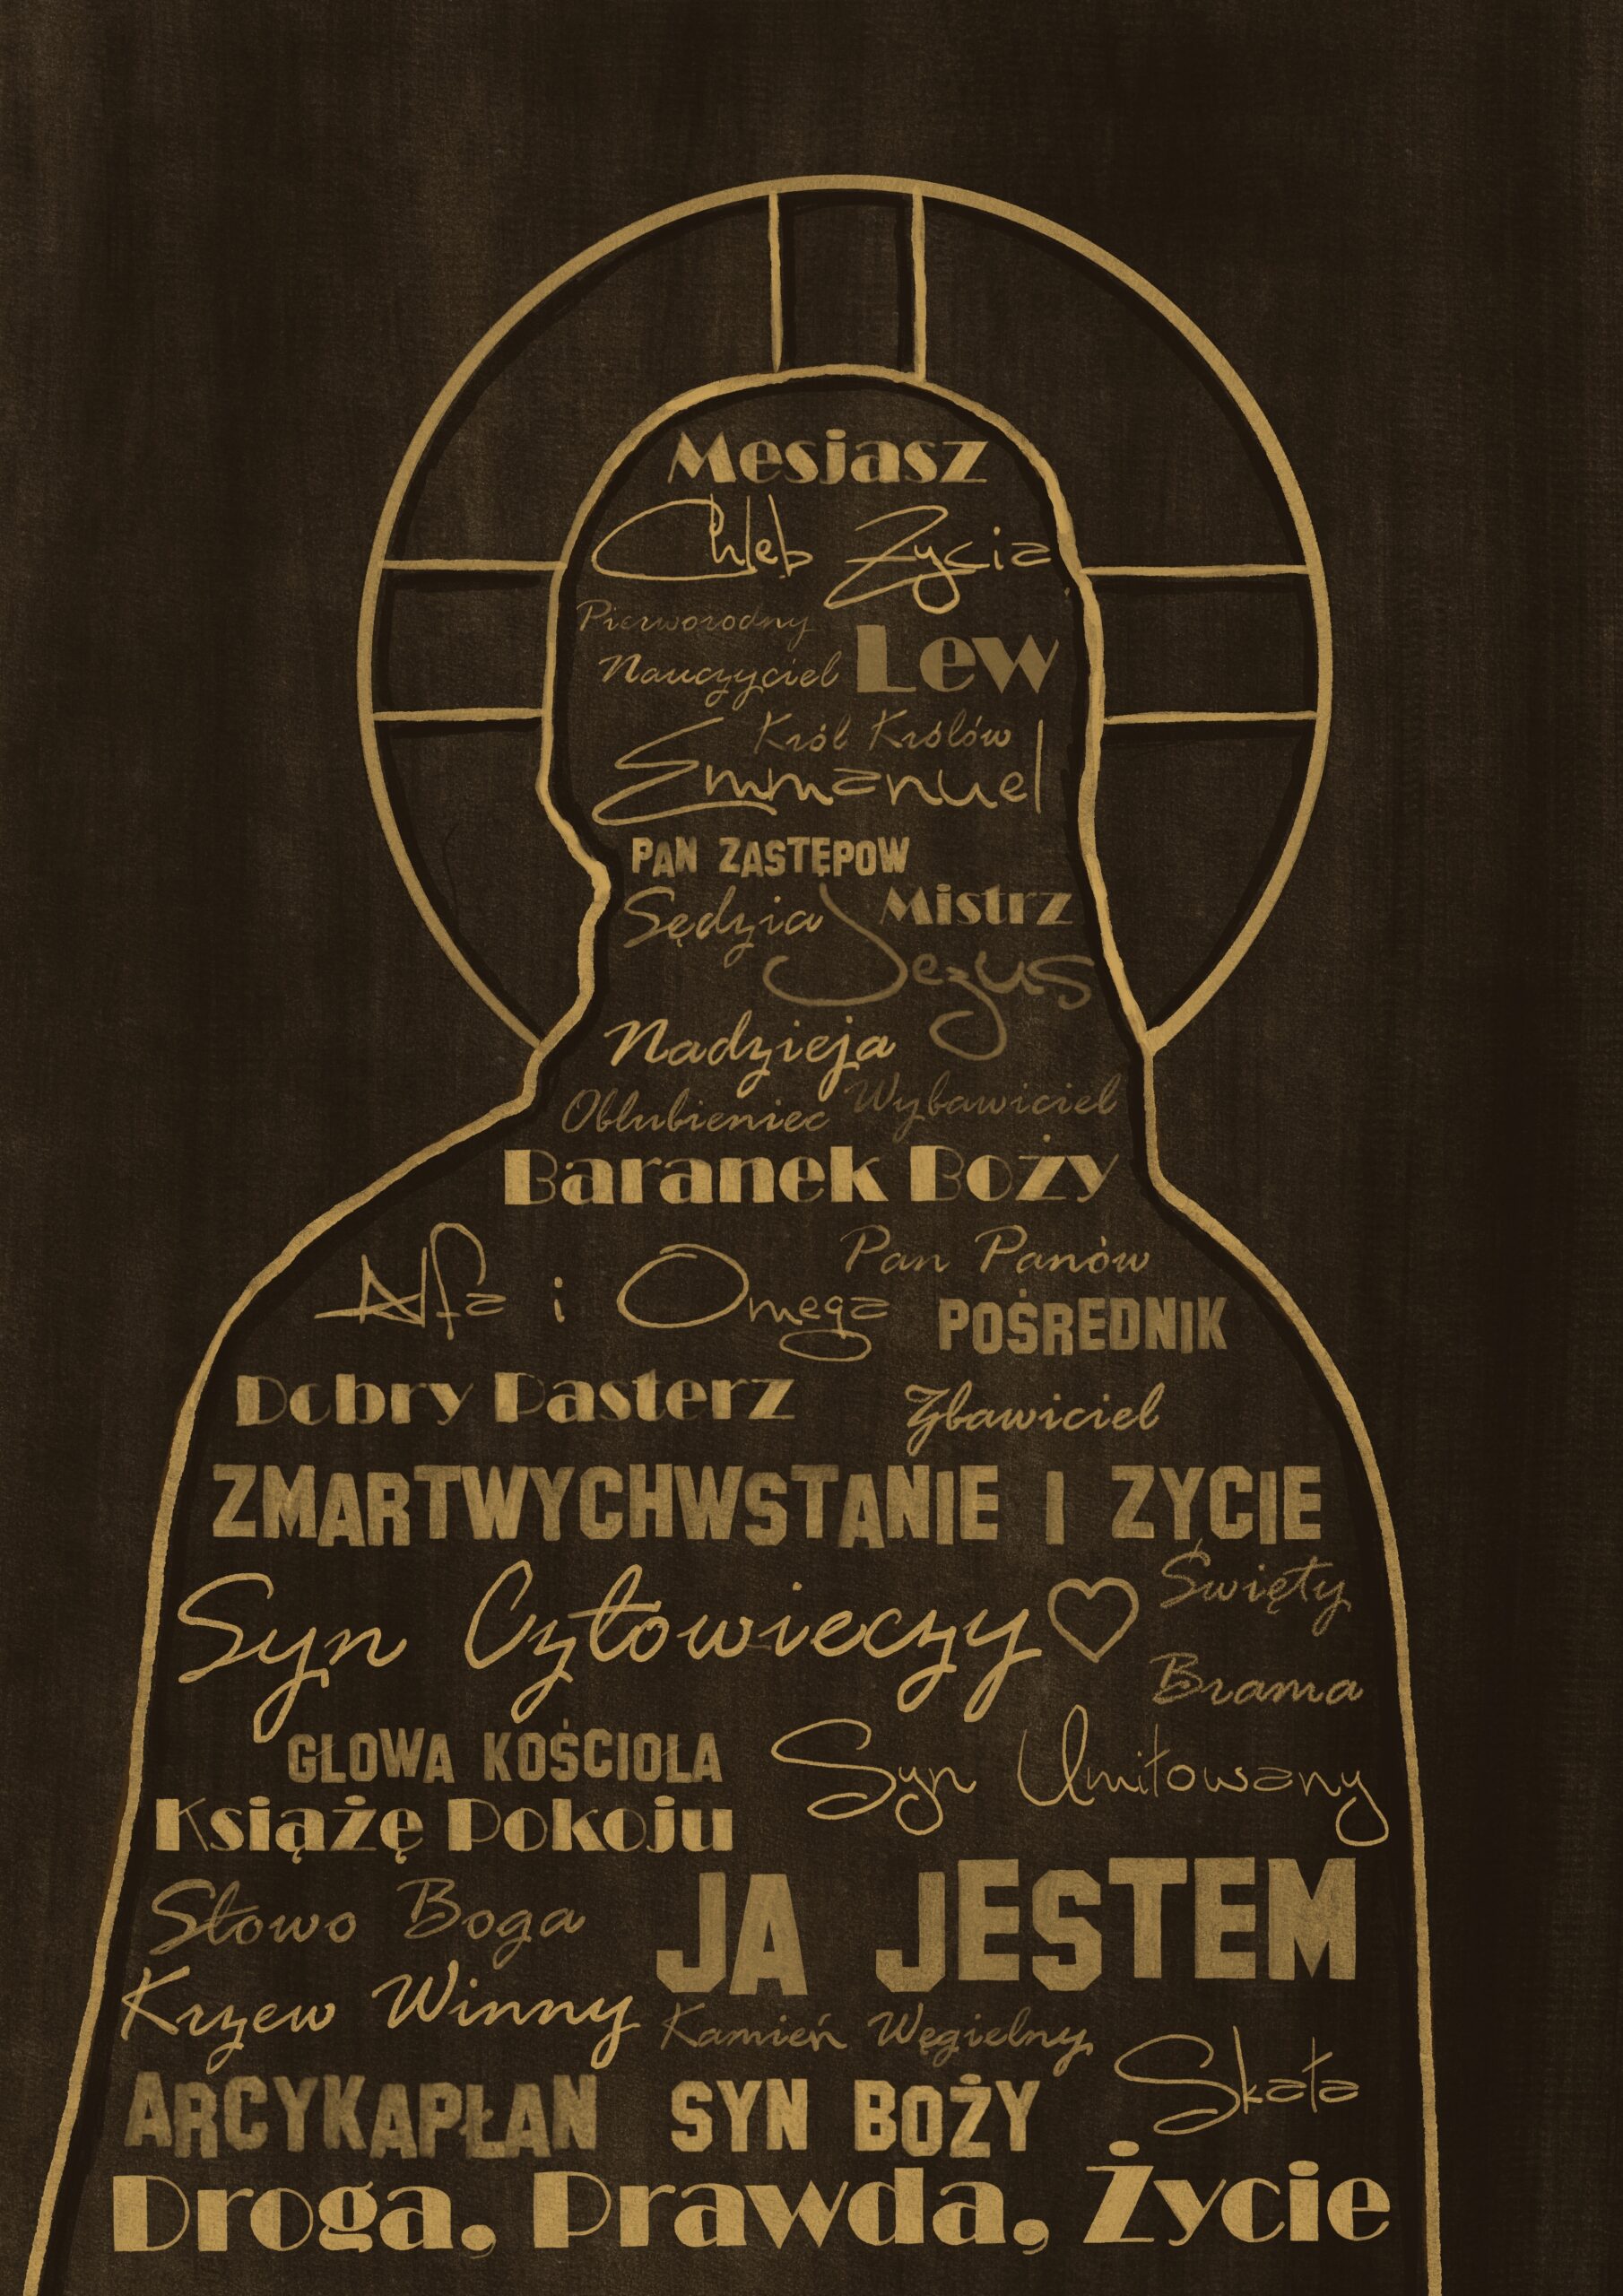 Mesjasz
Chleb Zycia
Pierworodny
Nauczyciel Lew
Król Królów
Emmanuel
PAN ZASTĘPOW
Sędzia Mistrz
Jezus
Nadzieja
Oblubieniec Wybawiciel
Baranek Boży
Alfa i Omega Pan Panów
POŚREDNIK
Dobry Pasterz Zbawiciel
ZMARTWYCHWSTANIE I ZYCIE
Syn Człowieczy Święty
Brama
GŁOWA KOŚCIOŁA Syn Umiłowany
Książę Pokoju
Słowo Boga JA JESTEM
Krzew Winny Kamień Węgielny
Skała
ARCYKAPŁAN SYN BOŻY
Droga, Prawda, Życie